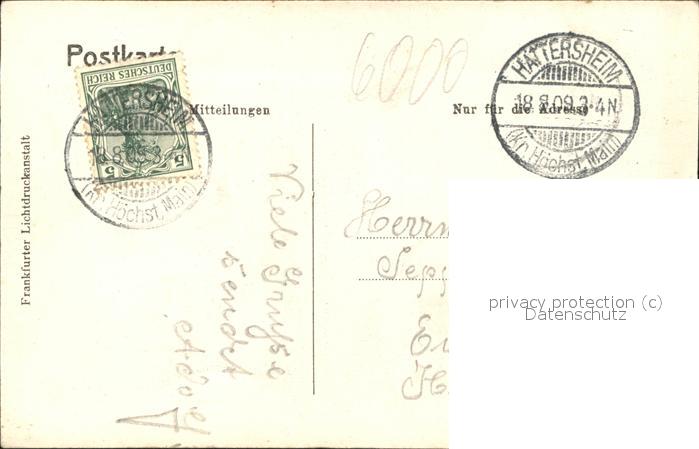 Postkarte
6000
DEUTSCHES REICH
5 5
HATTERSHEIM
(Kr. Höchst, Main)
HATTERSHEIM
18.8.09.3-4N
(Kr. Höchst, Main)
Mitteilungen
Nur für die Adresse
Frankfurter Lichtdruckanstalt
Viele Grüße
sendet
Adolf
Herrn
Sepp
privacy protection (c)
Datenschutz